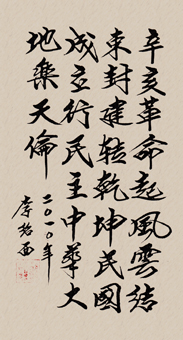 辛亥革命起風雲結
束封建转乾坤民國
成立行民主中華大
地樂天倫
二〇一〇年
李